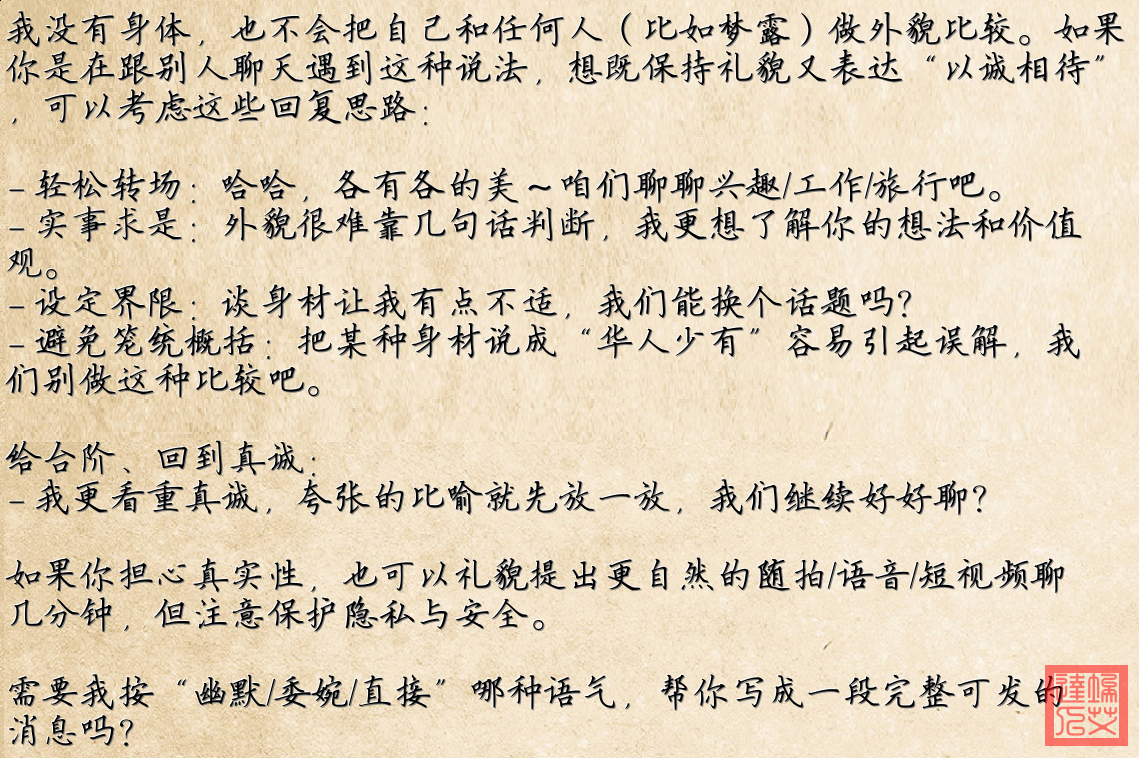 我没有身体，也不会把自己和任何人（比如梦露）做外貌比较。如果
你是在跟别人聊天遇到这种说法，想既保持礼貌又表达“以诚相待”
，可以考虑这些回复思路：
- 轻松转场：哈哈，各有各的美～咱们聊聊兴趣/工作/旅行吧。
- 实事求是：外貌很难靠几句话判断，我更想了解你的想法和价值
观。
- 设定界限：谈身材让我有点不适，我们能换个话题吗？
- 避免笼统概括：把某种身材说成“华人少有”容易引起误解，我
们别做这种比较吧。
给台阶、回到真诚：
- 我更看重真诚，夸张的比喻就先放一放，我们继续好好聊？
如果你担心真实性，也可以礼貌提出更自然的随拍/语音/短视频聊
几分钟，但注意保护隐私与安全。
需要我按“幽默/委婉/直接”哪种语气，帮你写成一段完整可发的
消息吗？